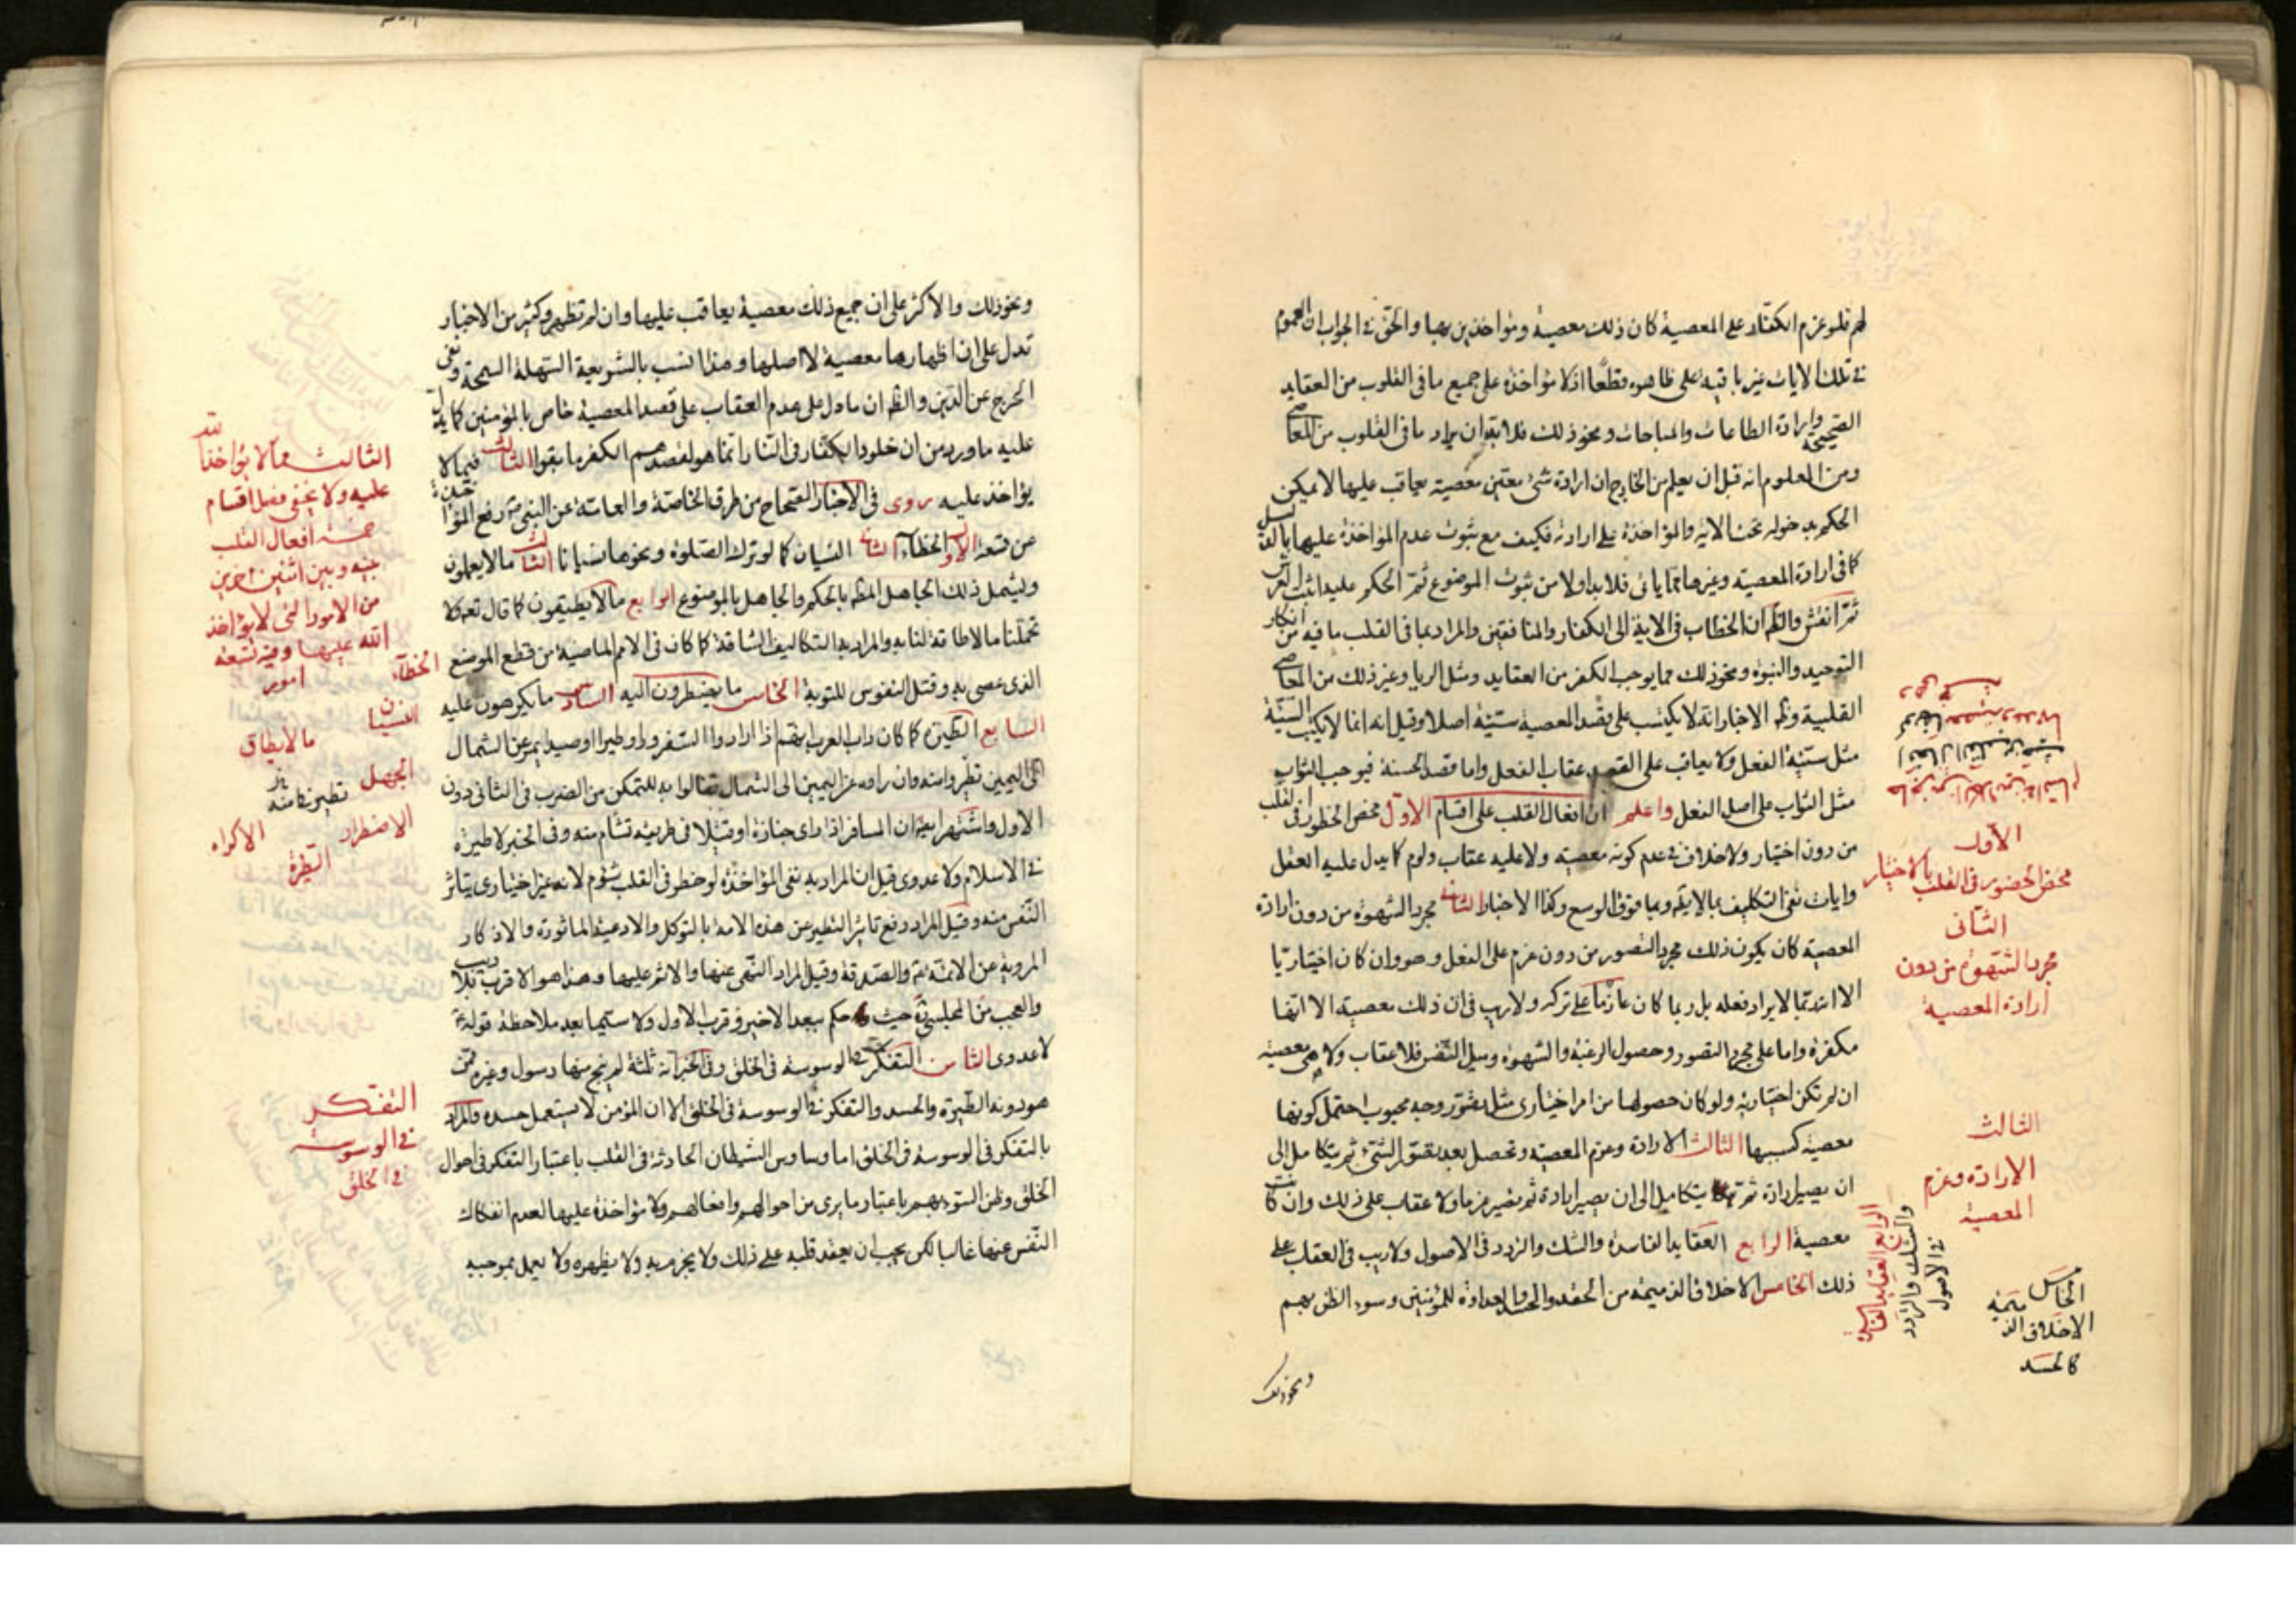 لهم فلو عزم الكفار على المعصية كان ذلك معصية ومؤاخذين بها والحق في الجواب ان العموم
في تلك الايات غير باقية على ظاهره قطعًا اذ لا مؤاخذة على جميع ما في القلوب من العقايد
الصحيحة وارادة الطاعات والمباحات ونحو ذلك فلا بد وان يراد ما في القلوب من المعاصي
ومن المعلوم انه قبل ان يعلم من الخارج ان ارادة شئ معين معصية يعاقب عليها لا يمكن
الحكم بدخوله تحت الاية والمؤاخذة على ارادته فكيف مع ثبوت عدم المؤاخذة عليها بالدليل
كما في ارادة المعصية وغيرها مما ياتي فلا بد اولا من ثبوت الموضوع ثم الحكم عليه اثبت العرش
ثم انقش والظ ان الخطاب في الاية الى الكفار والمنافقين والمراد بما في القلب ما فيه من انكار
التوحيد والنبوة ونحو ذلك مما يوجب الكفر من العقايد ومثل الريا وغير ذلك من المعاصي
القلبية وظ الاخبار انه لا يكتب على قصد المعصية سيئة اصلا وقيل انه انما لا يكتب السيئة
مثل سيئة الفعل ولا يعاقب على القصد عقاب الفعل واما قصد الحسنة فيوجب الثواب
مثل الثواب على اصل الفعل واعلم ان افعال القلب على اقسام الاول محض الخطور في القلب
من دون اختيار ولا خلاف في عدم كونه معصية ولا عليه عقاب ولوم كما يدل عليه العقل
وايات نفي التكليف بما لا يقدر وبما فوق الوسع وكذا الاخبار الثاني مجرد الشهوة من دون ارادة
المعصية كان يكون ذلك مجرد التصور من دون عزم على الفعل وهو وان كان اختياريا
الا انه ربما لا يراد فعله بل ربما كان عازما على تركه ولا ريب في ان ذلك معصية الا انها
مكفرة واما على مجرد التصور وحصول الرغبة والشهوة وميل النفس فلا عقاب ولا هي معصية
ان لم تكن اختيارية ولو كان حصولها من امر اختياري مثل تصور وجه محبوب احتمل كونها
معصية كسببها الثالث الارادة وعزم المعصية وتحصل بعد تصور الشئ ثم يتكامل الى
ان يصير ارادة ثم يتكامل الى ان يصير ارادة ثم يصير عزما ولا عقاب على ذلك وان كانت
معصية الرابع العقايد الفاسدة والشك والتردد في الاصول ولا ريب في العقاب على
ذلك الخامس الاخلاق الذميمة من الحقد والحسد والعداوة للمؤمنين وسوء الظن بهم
ونحو ذلك
الاول
محض الحضور في القلب بالاختيار
الثاني
مجرد الشهوة من دون
ارادة المعصية
الثالث
الارادة وعزم
المعصية
الرابع العقايد الفاسدة
والشك والتردد
في الاصول
الخامس
الاخلاق الذميمة
كالحسد
ونحو ذلك والاكثر على ان جميع ذلك معصية يعاقب عليها وان لم تظهر وكثير من الاخبار
تدل على ان اظهارها معصية لا اصلها وهذا انسب بالشريعة السهلة السمحة ونفي
الحرج عن الدين والظ ان ما دل على عدم العقاب على قصد المعصية خاص بالمؤمنين كما يدل
عليه ما ورد من ان خلود الكفار في النار انما هو لقصدهم الكفر ما بقوا الثالث فيما لا
يؤاخذ عليه روى في الاخبار الصحاح من طرق الخاصة والعامة عن النبي ص رفع المؤاخذة
عن تسعة الاول الخطاء الثاني النسيان كما لو ترك الصلوة ونحوها نسيانا الثالث ما لا يعلمون
ويشمل ذلك الجاهل المظ بالحكم والجاهل بالموضوع الرابع ما لا يطيقون كما قال تعه ولا
تحملنا ما لا طاقة لنا به والمراد به التكاليف الشاقة كما كان في الامم الماضية من قطع الموضع
الذي عصى به وقتل النفوس للتوبة الخامس ما يضطرون اليه السادس ما يكرهون عليه
السابع الطيرة كما كان داب العرب انهم اذا ارادوا السفر وراوا طيرا او صيدا يمر عن الشمال
الى اليمين تطيروا منه وان راوه عن اليمين الى الشمال تفالوا به للتمكن من الضرب في الثاني دون
الاول واشتهر ايضا ان المسافر اذا راى جنازة او قتيلا في طريقه تشام منه وفي الخبر لا طيرة
في الاسلام ولا عدوى قيل ان المراد به نفي المؤاخذة لو خطر في القلب شؤم لانه غير اختياري يتاثر
النفس منه وقيل المراد رفع تاثير التطير عن هذه الامة بالتوكل والادعية الماثورة والاذكار
المروية عن الائمة ع والصدقة وقيل المراد النهي عنها والاثم عليها وهذا هو الاقرب بلا ريب
والعجب من المجلسي ره حيث حكم ببعد الاخير وقرب الاول ولا سيما بعد ملاحظة قوله ع
لا عدوى الثامن التفكر في الوسوسة في الخلق وفي الخبر انه ثلثة لم ينج منها رسول وغيره ممن
هو دونه الطيرة والحسد والتفكر في الوسوسة في الخلق الا ان المؤمن لا يستعمل حسده والمراد
بالتفكر في الوسوسة في الخلق اما وساوس الشيطان الحادثة في القلب باعتبار التفكر في احوال
الخلق وظن السوء بهم باعتبار ما يرى من احوالهم وافعالهم ولا مؤاخذة عليها لعدم انفكاك
النفس عنها غالبا لكن يجب ان يعقد قلبه على ذلك ولا يجزم به ولا يظهره ولا يعمل بموجبه
الثالث مما لا يؤاخذ الله
عليه ولا يخفى فصل اقسام
خمسة افعال القلب
بينه وبين اثنين اخرين
من الامور التي لا يؤاخذ
الله عليها وفيه تسعة
امور
الخطاء
النسيان
ما لا يطاق
الجهل
الاضطرار
الاكراه
الطيرة
التفكر
في الوسوسة
في الخلق